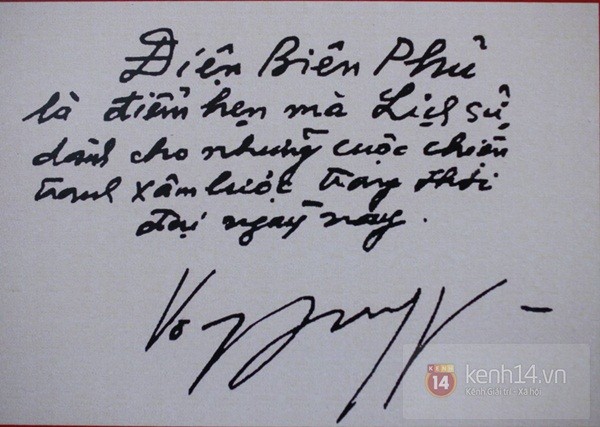 Điện Biên Phủ
là điểm hẹn mà Lịch sử
dành cho những cuộc chiến
tranh xâm lược trong thời
đại ngày nay.
Võ
KENH 14
kenh14.vn
Kênh Giải trí - Xã hội